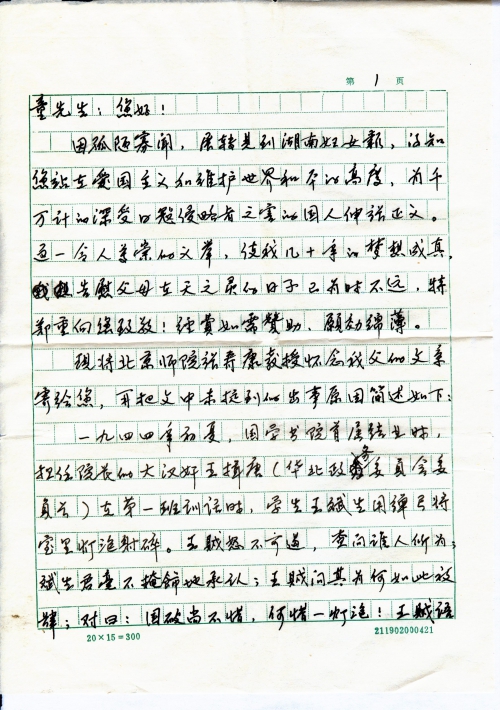 第 1 页
童先生：您好！
因孤陋寡闻，展转见到湖南妇女报，得知
您站在爱国主义和维护世界和平的高度，为千
万计的深受日寇侵略者之害的国人伸张正义。
这一令人尊崇的义举，使我几十年的梦想成真，
告慰父母在天之灵的日子已为时不远，特
郑重向您致敬！经费如需赞助、愿効绵薄。
现将北京师院张寿康教授怀念我父的文章
寄给您，再把文中未提到的出事原因简述如下：
一九四四年初夏，国学书院首届结业时，
担任院长的大汉奸王揖唐（华北政务委员会委
员长）在第一班训话时，学生王斌生用弹弓将
室里灯泡射碎。王贼怒不可遏，查问谁人所为；
斌生君毫不掩饰地承认；王贼问其为何如此放
肆；对曰：国破尚不惜，何惜一灯泡！王贼语
20×15=300
211902000421